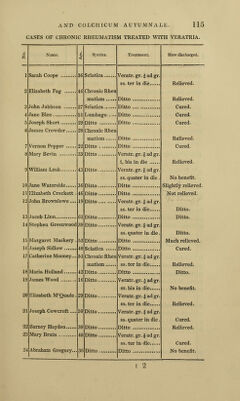 AND COLCHICUM AUTUMNALE. 115
CASES OF CHRONIC RHEUMATISM TREATED WITH VERATRIA.
No. Name. Age. System. Treatment. How discharged.
1 Sarah Coope 36 Sciatica Veratr. gr. ad gr.
ss. ter in die Relieved.
2 Elizabeth Fog 46 Chronic Rheu
matism Ditto Relieved.
3 John Jabboon 27 Sciatica Ditto Cured.
4 Jane Blee 51 Lumbago Ditto Cured.
5 Joseph Short 29 Ditto Ditto Cured.
6 James Crowder 28 Chronic Rheu
matism Ditto Relieved.
7 Vernon Pepper 22 Ditto Ditto Cured.
8 Mary Bevin 23 Ditto Veratr. gr. ad gr.
i, bis in die Relieved.
9 William Leah 43 Ditto Veratr. gr. ad gr.
ss. quater in die No benefit.
10 Jane Waterside 36 Ditto Ditto Slightly relieved
11 Elizabeth Crockett 46 Ditto Ditto Not relieved.
12 John Brownlowe 19 Ditto Veratr. gr. ad gr.
ss. ter in die Ditto.
13 Jacob Linn 61 Ditto Ditto Ditto.
14 Stephen Greenwood 39 Ditto Veratr. gr. ad gr.
ss. quater in die Ditto.
15 Margaret Maskery 53 Ditto Ditto Much relieved.
16 Joseph Sidlow 48 Sciatica Ditto Cured.
17 Catherine Mooney 53 Chronic Rheu Veratr. gr. ad gr.
matism ss. ter in die Relieved.
18 Maria Holland 42 Ditto Ditto Ditto.
19 James Wood 16 Ditto Veratr. gr. ad gr.
ss. bis in die No benefit.
20 Elizabeth McQuade 29 Ditto Veratr. gr. ad gr.
ss. ter in die Relieved.
21 Joseph Cowcroft 20 Ditto Veratr. gr. ad gr.
ss. quater in die Cured.
22 Barney Hayden 30 Ditto Ditto Relieved.
23 Mary Brain 48 Ditto Veratr. gr. ad gr.
ss. ter in die Cured.
24 Abraham Gregory 35 Ditto Ditto No benefit.
I 2